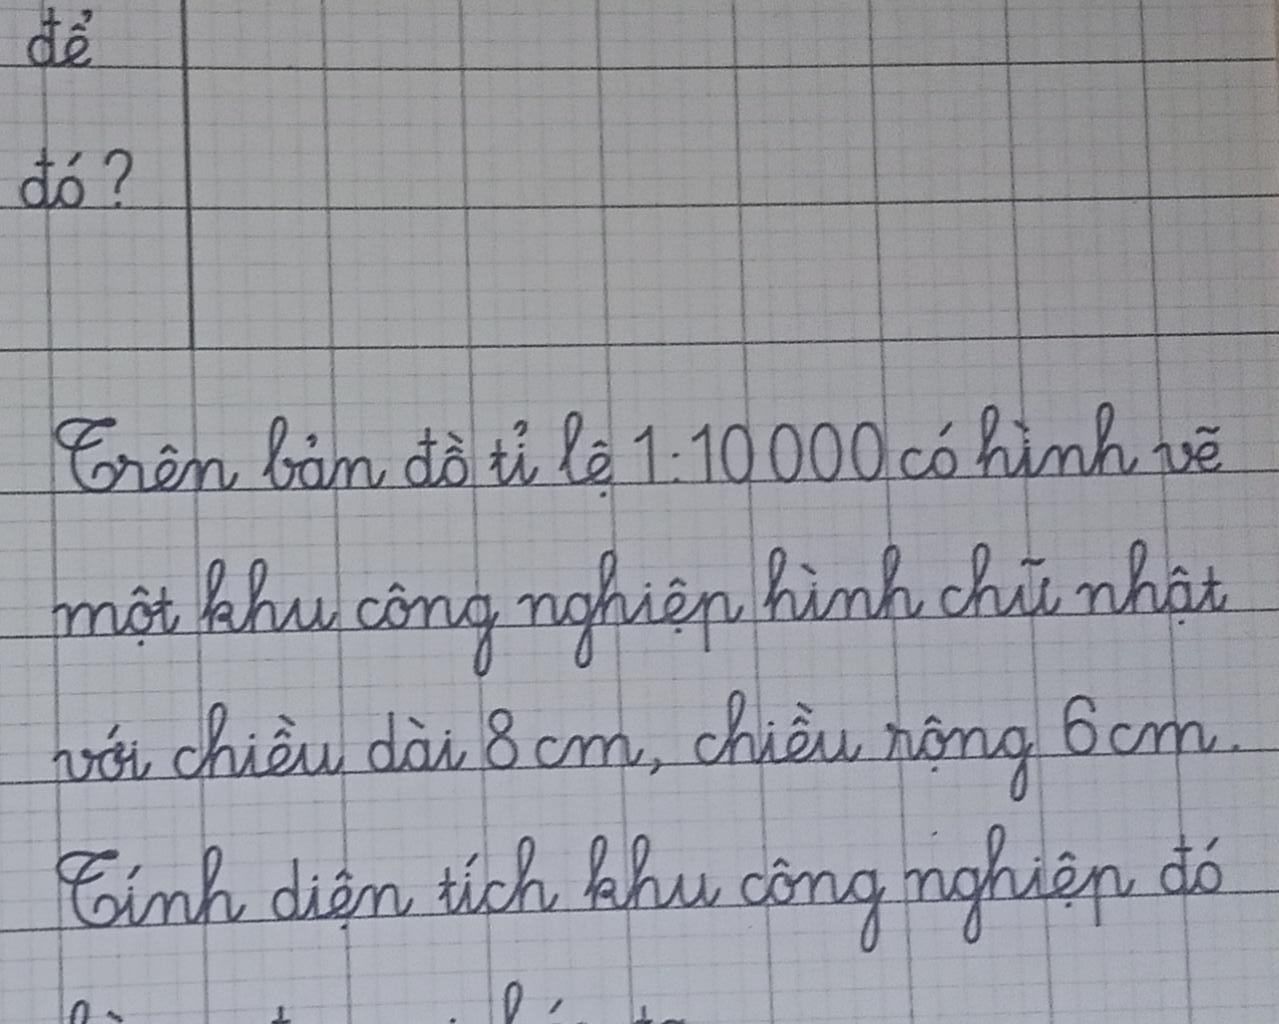 để
đó?
Trên bản đồ tỉ lệ 1:10 000 có hình vẽ
một khu công nghiệp hình chữ nhật
với chiều dài 8 cm, chiều rộng 6 cm.
Tính diện tích khu công nghiệp đó